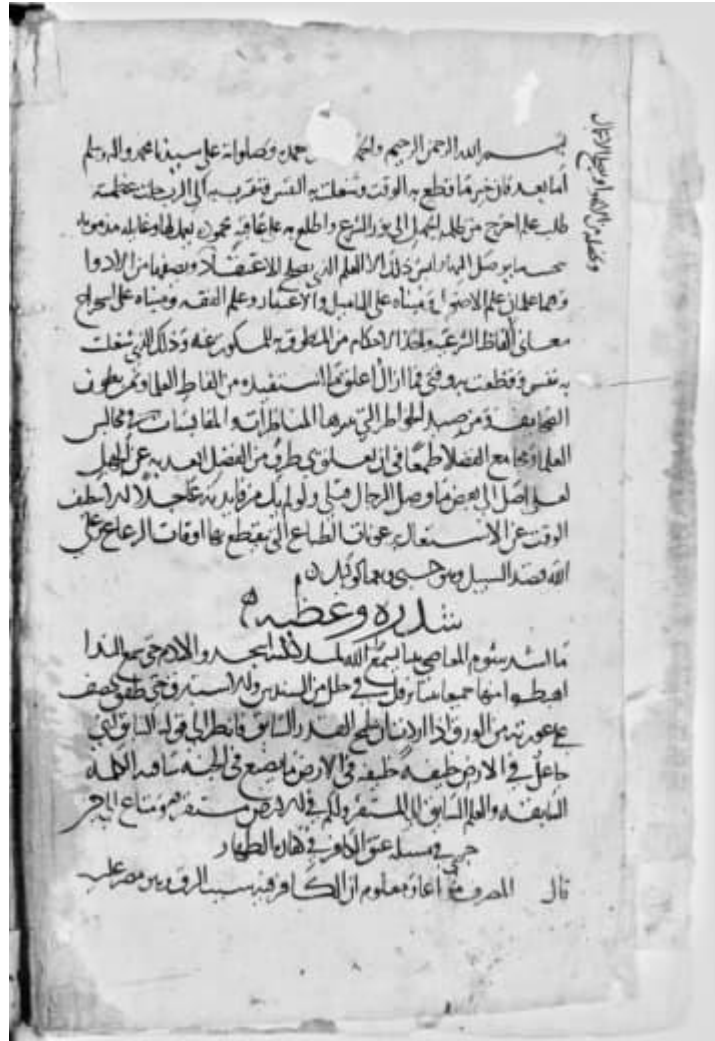 بسم الله الرحمن الرحيم حمده وصلواته على سيدنا محمد واله وسلم
اما بعد فان خير ما قطع به الوقت وشغلت به النفس فتقرب به الى الرب جلت عظمته
طلب علم اخرج من ظلمه الجهل الى نور الشرع واطلع به على عاقبه محموده يعمل لها وغايله مذمومه
ما يوصل اليها وليس ذلك الا العلم الذي يصلح الاعتقاد من الادوا
وهما علمان علم الاصول ومبناه على التامل والاعتبار وعلم الفقه ومبناه على استخراج
معاني الفاظ الشرعيه واخذ الاحكام من المنطوق به للمسكوت عنه وذلك الذي شغلت
به نفسي وقطعت به وقتي فما ازال اعلق ما استفيده من الفاظ العلما ومن بطون
الصحايف ومن صيد الخواطر التي تنثرها المناظرات والمقابسات في مجالس
العلما ومجامع الفضلا طمعا في ان يعلق بي طرف من الفضل ابعد به عن الجهل
لعلي اصل الى بعض ما وصل الرجال قبلي ولو لم يك من فايدته عاجلا الا تنظيف
الوقت عن الاشتغال برعونات الطباع التي ينقطع بها اوقات الرعاع وعلى
الله قصد السبيل وهو حسبي ونعم الوكيل
شذره وعظيه
ما اشد شوم المعاصي بينا يسمع الله الملايكه اسجدوا لادم حتى سمع الندا
اهبطوا منها جميعا بينا يرفل في حلل من السندس والاستبرق حتى طفق يخصف
على عورته من الورق اذا اردت ان القدر السابق فانظر الى قوله السابق اني
جاعل في الارض خليفه خليفه في الارض ما يصنع في الجنه ساقته الكلمه
السابقه والعلم السابق الى المستقر ولكم في الارض مستقر ومتاع الى حين
جرى في مسله عتق الكافر في كفاره الظهار
قال معلوم ان الكافر فيه سبب الرق